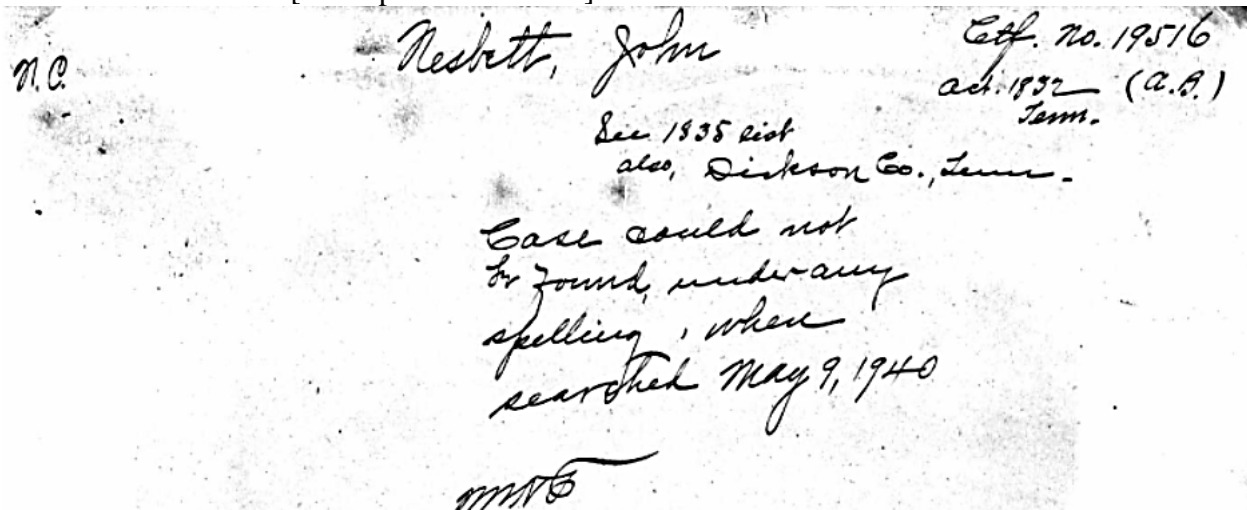 N.C.
Nesbett, John
Ctf. No. 19516
Act. 1832 (A.B.)
Tenn.
See 1835 list
also, Dickson Co., Tenn.
Case could not
be found, under any
spelling, when
searched May 9, 1940